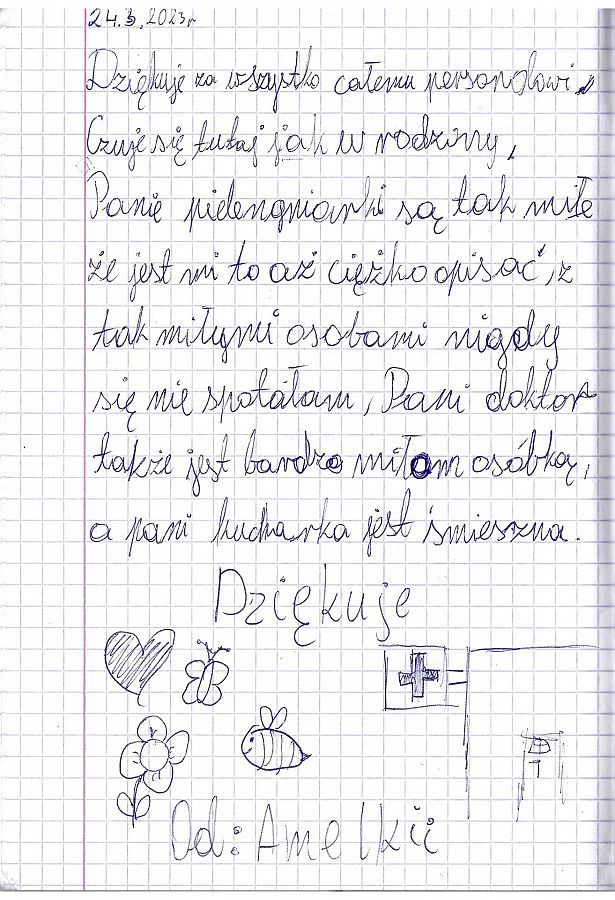 24.3.2023r
Dziękuję za wszystko całemu personolowi.
Czuje się tutaj jak w rodziny,
Panie pielengniarki są tak miłe
że jest mi to aż ciężko opisać, z
tak miłymi osobami nigdy
się nie spotałam, Pani doktor
także jest bardzo miłom osóbką,
a pani kucharka jest śmieszna.
Dziękuje
Od: Amelkii